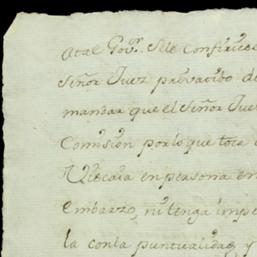 atal Gov.r Se le Confirio
Señor Juez privativo de
mandar que el Señor Jue
Comision por lo que toca
en persona en
embarzo, ni tenga impe
la con la puntualidad y